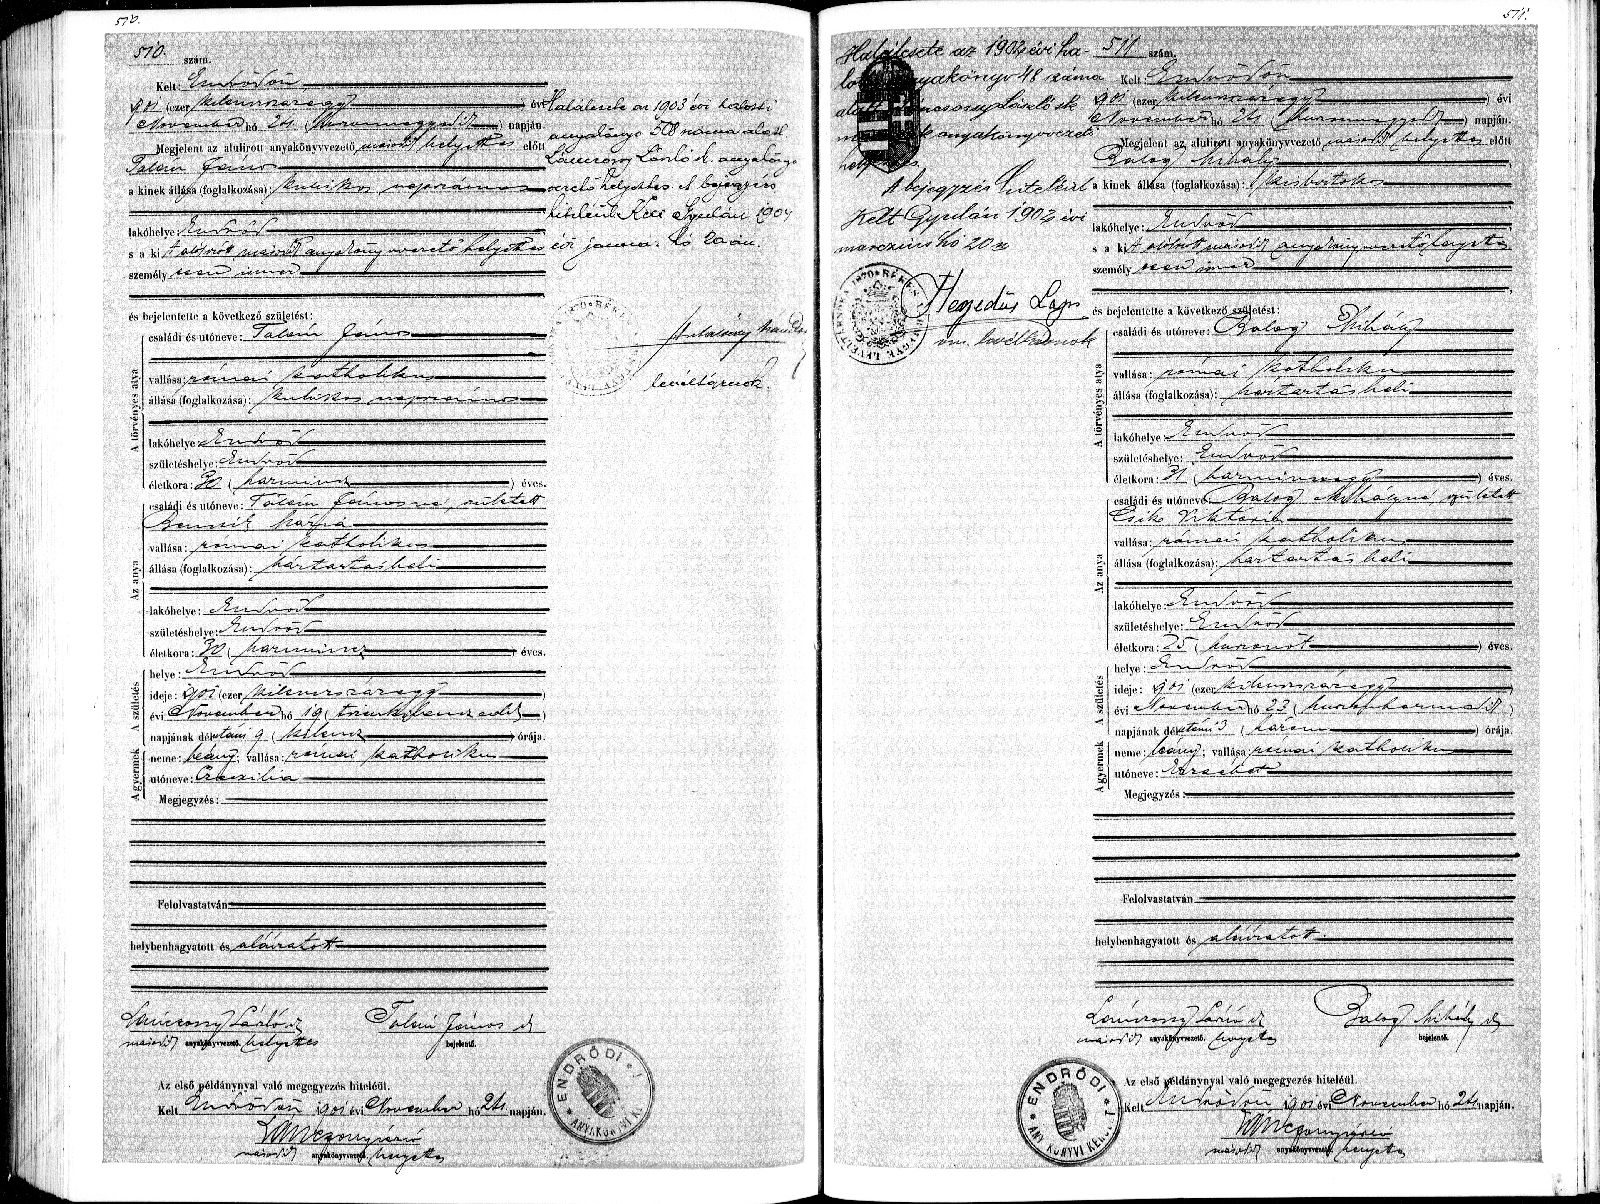 510.
510. szám.
Kelt: Endrődön
901 (ezer kilenczszázegy) évi
November hó 24 (huszonnegyedik) napján.
Megjelent az alulirott anyakönyvvezető másod helyettes előtt
János
a kinek állása (foglalkozása): kubikos napszámos
lakóhelye: Endrőd
s a kit alólírott másod anyakönyvvezető helyettes
személy esen ismer
és bejelentette a következő születést:
A törvényes atya
családi és utóneve: János
vallása: római katholikus
állása (foglalkozása): kubikos napszámos
lakóhelye: Endrőd
születéshelye: Endrőd
életkora: 30 (harmincz) éves.
Az anya
családi és utóneve: Jánosné, született
Mária
vallása: római katholikus
állása (foglalkozása): háztartásbeli
lakóhelye: Endrőd
születéshelye: Endrőd
életkora: 30 (harmincz) éves.
A születés
helye: Endrőd
ideje: 901 (ezer kilenczszázegy)
évi November hó 19 (tizenkilenczedik)
napjának délutáni 9 (kilencz) órája.
A gyermek
neme: leány; vallása: római katholikus
utóneve: Czeczilia
Megjegyzés:
Felolvastatván
helybenhagyatott és aláiratott
László
másod anyakönyvvezető helyettes
János
bejelentő.
Az első példánynyal való megegyezés hiteléül.
Kelt Endrődön 1901 évi November hó 24 napján.
másod anyakönyvvezető helyettes
Halálesete az 1903 évi halotti
anyakönyv 508 száma alatt
László s. k. anyakönyv
vezető helyettes A bejegyzés
hiteléül Kelt Gyulán 1904
évi január hó 20 án.
levéltárnok.
ENDRŐDI ANYAKÖNYVI KER
511.
Halálesete az 1902 évi ha-
lotti anyakönyv 48 száma
alatt László sk
anyakönyvvezető
helyettes
A bejegyzés hiteléül
Kelt Gyulán 1902 évi
marczius hó 20 n
Hegedüs Lajos
511 szám.
Kelt: Endrődön
901 (ezer kilenczszázegy) évi
November hó 24 (huszonnegyedik) napján.
Megjelent az alulirott anyakönyvvezető másod helyettes előtt
Balog Mihály
a kinek állása (foglalkozása): kisbirtokos
lakóhelye: Endrőd
s a kit alólírott másod anyakönyvvezető helyettes
személy esen ismer
és bejelentette a következő születést:
A törvényes atya
családi és utóneve: Balog Mihály
vallása: római katholikus
állása (foglalkozása): háztartásbeli
lakóhelye: Endrőd
születéshelye: Endrőd
életkora: 31 (harminczegy) éves.
Az anya
családi és utóneve: Balog Mihályné, született
Csikó Viktória
vallása: római katholikus
állása (foglalkozása): háztartásbeli
lakóhelye: Endrőd
születéshelye: Endrőd
életkora: 25 (huszonöt) éves.
A születés
helye: Endrőd
ideje: 901 (ezer kilenczszázegy)
évi November hó 23 (huszonharmadik)
napjának délutáni 3 (három) órája.
A gyermek
neme: leány; vallása: római katholikus
utóneve: Erzsébet
Megjegyzés:
Felolvastatván
helybenhagyatott és aláiratott.
László
másod anyakönyvvezető helyettes
Balog Mihály
bejelentő.
Az első példánynyal való megegyezés hiteléül.
Kelt Endrődön 1901 évi November hó 24 napján.
másod anyakönyvvezető helyettes
ENDRŐDI ANYAKÖNYVI KER